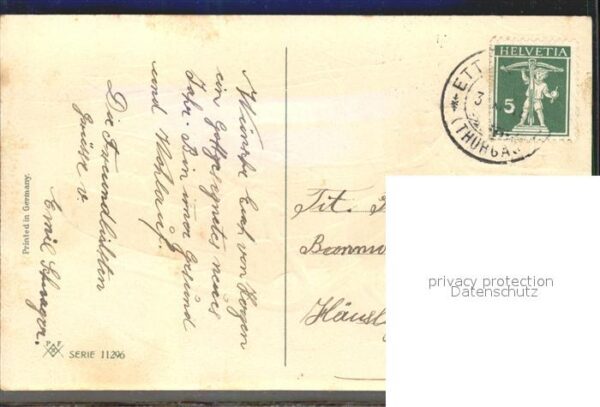 Wünsche Euch von Herzen
ein Gottgesegnetes neues
Jahr. Bin immer Gesund
und Wohlauf!
Die Freundlichsten
Grüsse v.
Emil
Printed in Germany.
PFB
SERIE 11296
HELVETIA
5
ETT
(THURGA
Tit.
privacy protection
Datenschutz